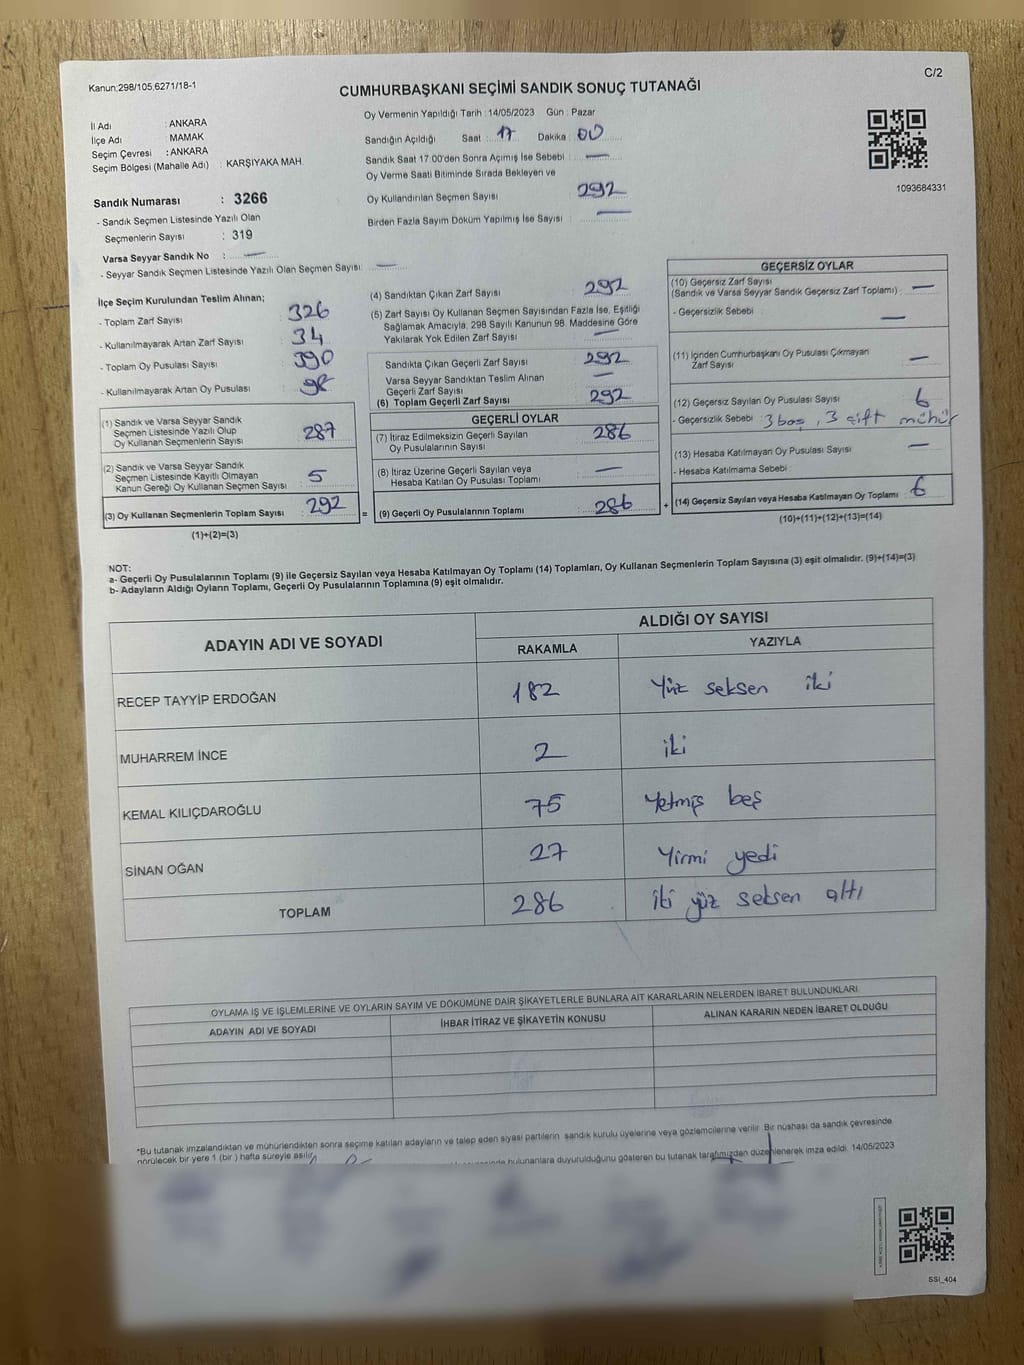 Kanun:298/105,6271/18-1
C/2
CUMHURBAŞKANI SEÇİMİ SANDIK SONUÇ TUTANAĞI
İl Adı : ANKARA
İlçe Adı : MAMAK
Seçim Çevresi : ANKARA
Seçim Bölgesi (Mahalle Adı) : KARŞIYAKA MAH.
Sandık Numarası : 3266
- Sandık Seçmen Listesinde Yazılı Olan
Seçmenlerin Sayısı : 319
Varsa Seyyar Sandık No : —
- Seyyar Sandık Seçmen Listesinde Yazılı Olan Seçmen Sayısı: —
Oy Vermenin Yapıldığı Tarih : 14/05/2023 Gün : Pazar
Sandığın Açıldığı Saat : 17 Dakika : 00
Sandık Saat 17:00'den Sonra Açımış İse Sebebi : —
Oy Verme Saati Bitiminde Sırada Bekleyen ve
Oy Kullandırılan Seçmen Sayısı : 292
Birden Fazla Sayım Döküm Yapılmış İse Sayısı : —
1093684331
İlçe Seçim Kurulundan Teslim Alınan;
- Toplam Zarf Sayısı : 326
- Kullanılmayarak Artan Zarf Sayısı : 34
- Toplam Oy Pusulası Sayısı : 390
- Kullanılmayarak Artan Oy Pusulası : 98
(1) Sandık ve Varsa Seyyar Sandık
Seçmen Listesinde Yazılı Olup
Oy Kullanan Seçmenlerin Sayısı : 287
(2) Sandık ve Varsa Seyyar Sandık
Seçmen Listesinde Kayıtlı Olmayan
Kanun Gereği Oy Kullanan Seçmen Sayısı : 5
(3) Oy Kullanan Seçmenlerin Toplam Sayısı : 292
(1)+(2)=(3)
(4) Sandıktan Çıkan Zarf Sayısı : 292
(5) Zarf Sayısı Oy Kullanan Seçmen Sayısından Fazla İse, Eşitliği
Sağlamak Amacıyla, 298 Sayılı Kanunun 98. Maddesine Göre
Yakılarak Yok Edilen Zarf Sayısı : —
Sandıkta Çıkan Geçerli Zarf Sayısı : 292
Varsa Seyyar Sandıktan Teslim Alınan
Geçerli Zarf Sayısı : —
(6) Toplam Geçerli Zarf Sayısı : 292
GEÇERLİ OYLAR
(7) İtiraz Edilmeksizin Geçerli Sayılan
Oy Pusulalarının Sayısı : 286
(8) İtiraz Üzerine Geçerli Sayılan veya
Hesaba Katılan Oy Pusulası Toplamı : —
= (9) Geçerli Oy Pusulalarının Toplamı : 286 +
GEÇERSİZ OYLAR
(10) Geçersiz Zarf Sayısı
(Sandık ve Varsa Seyyar Sandık Geçersiz Zarf Toplamı) : —
- Geçersizlik Sebebi : —
(11) İçinden Cumhurbaşkanı Oy Pusulası Çıkmayan
Zarf Sayısı : —
(12) Geçersiz Sayılan Oy Pusulası Sayısı : 6
- Geçersizlik Sebebi : 3 boş, 3 çift mühür
(13) Hesaba Katılmayan Oy Pusulası Sayısı : —
- Hesaba Katılmama Sebebi :
(14) Geçersiz Sayılan veya Hesaba Katılmayan Oy Toplamı : 6
(10)+(11)+(12)+(13)=(14)
NOT:
a- Geçerli Oy Pusulalarının Toplamı (9) ile Geçersiz Sayılan veya Hesaba Katılmayan Oy Toplamı (14) Toplamları, Oy Kullanan Seçmenlerin Toplam Sayısına (3) eşit olmalıdır. (9)+(14)=(3)
b- Adayların Aldığı Oyların Toplamı, Geçerli Oy Pusulalarının Toplamına (9) eşit olmalıdır.
ADAYIN ADI VE SOYADI ALDIĞI OY SAYISI
RAKAMLA YAZIYLA
RECEP TAYYİP ERDOĞAN 182 Yüz seksen iki
MUHARREM İNCE 2 iki
KEMAL KILIÇDAROĞLU 75 Yetmiş beş
SİNAN OĞAN 27 Yirmi yedi
TOPLAM 286 iki yüz seksen altı
OYLAMA İŞ VE İŞLEMLERİNE VE OYLARIN SAYIM VE DÖKÜMÜNE DAİR ŞİKAYETLERLE BUNLARA AİT KARARLARIN NELERDEN İBARET BULUNDUKLARI
ADAYIN ADI VE SOYADI İHBAR İTİRAZ VE ŞİKAYETİN KONUSU ALINAN KARARIN NEDEN İBARET OLDUĞU
*Bu tutanak imzalandıktan ve mühürlendikten sonra seçime katılan adayların ve talep eden siyasi partilerin sandık kurulu üyelerine veya gözlemcilerine verilir. Bir nüshası da sandık çevresinde
görülecek bir yere 1 (bir) hafta süreyle asılır. bulunanlara duyurulduğunu gösteren bu tutanak tarafımızdan düzenlenerek imza edildi. 14/05/2023
SSI_404